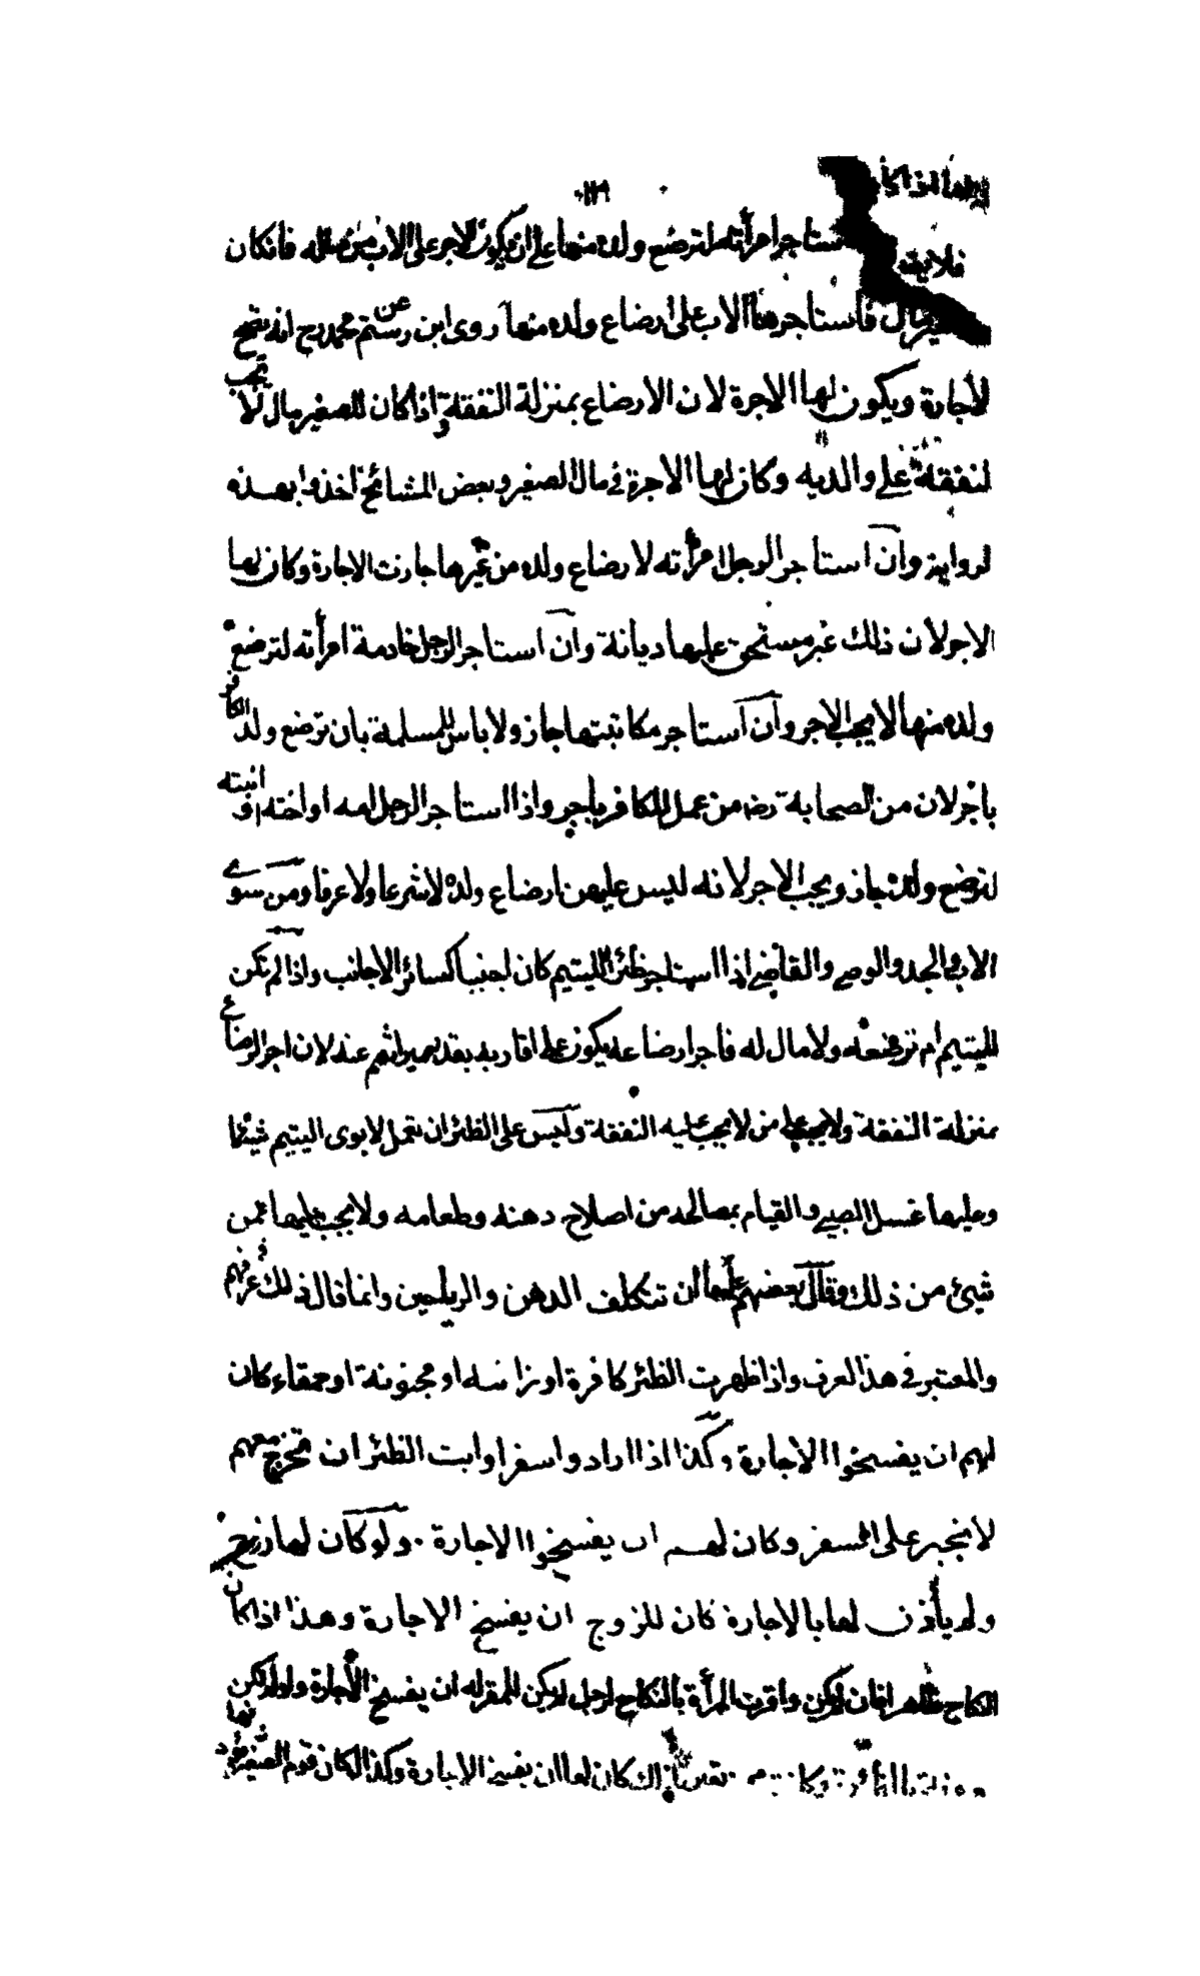 استاجر امرأته لترضع ولده منها على ان يكون الاجر على الاب من ماله فان كان
للصغير مال فاستاجرها الاب على ارضاع ولده منها روى ابن رستم عن محمد رح انه يصح
الاجارة ويكون لها الاجرة لان الارضاع بمنزلة النفقة واذا كان للصغير مال لا تجب
لنفقة على والديه وكان لها الاجرة في مال الصغير وبعض المشائخ اخذوا بهذه
لرواية وان استاجر الرجل امرأته لارضاع ولده من غيرها جازت الاجارة وكان لها
الاجر لان ذلك غير مستحق عليها ديانة وان استاجر الرجل خادمة امرأته لترضع
ولده منها لا يجب الاجر وان استاجر مكاتبتها جاز ولا باس للمسلمة بان ترضع ولد الكافر
باجر لان من الصحابة رض من عمل للكافر باجر واذا استاجر الرجل امه او اخته او ابنته
لترضع ولده جاز ويجب الاجر لانه ليس عليهن ارضاع ولده لا شرعا ولا عرفا ومن سوى
الاب والجد والوصي والقاضي اذا استاجر ظئرا لليتيم كان اجنبيا كسائر الاجانب واذا لم تكن
لليتيم ام ترضعه ولا مال له فاجر ارضاعه يكون على اقاربه بقدر ميراثهم عنه لان اجر الرضاع
بمنزلة النفقة ولا يجب على من لا يجب عليه النفقة وليس على الظئر ان تعمل لابوي اليتيم شيئا
وعليها غسل الصبي والقيام بمصالحه من اصلاح دهنه وطعامه ولا يجب عليها ثمن
شيئ من ذلك وقال بعضهم عليها ان تتكلف الدهن والرياحين وانما قال ذلك في عرفهم
والمعتبر في هذا العرف واذا ظهرت الظئر كافرة او زانية او مجنونة او حمقاء كان
لهم ان يفسخوا الاجارة وكذا اذا ارادوا سفرا وابت الظئر ان تخرج معهم
لا تجبر على السفر وكان لهم ان يفسخوا الاجارة ولو كان لها زوج
ولم يأذن لها بالاجارة كان للزوج ان يفسخ الاجارة وهذا اذا كان
النكاح ظاهرا فان لم يكن واقرت المرأة بالنكاح لرجل لم يكن للمقر له ان يفسخ الاجارة ولو لم تكن
كان لها ان يفسخ الاجارة وكذا لو كان قوم الصغير